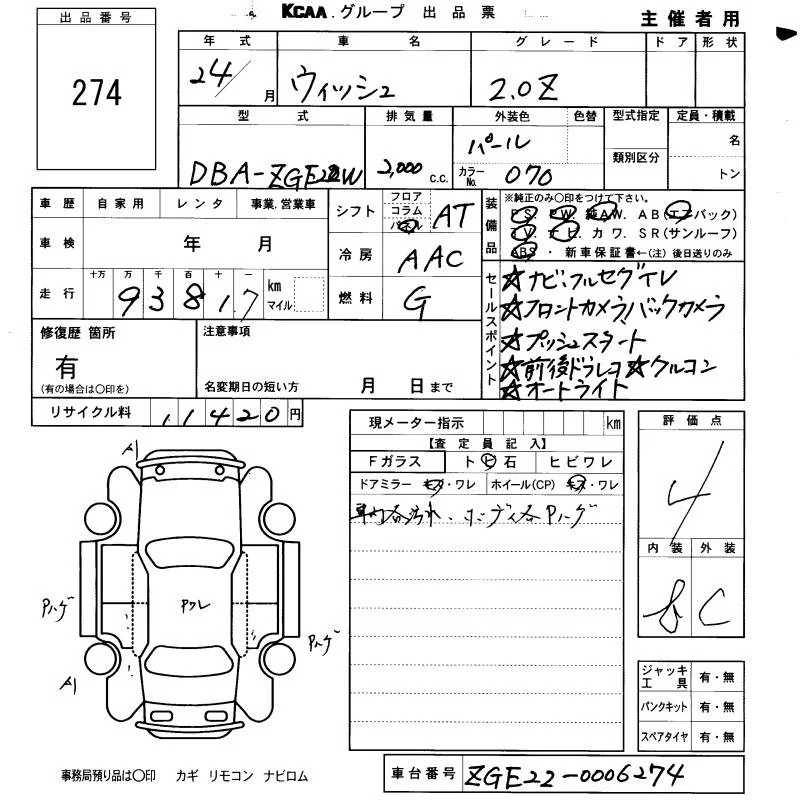 KCAA グループ 出品票
主催者用
出品番号
274
年式 車名 グレード ドア 形状
24/ 月 ウィッシュ 2.0Z
型式 排気量 外装色 色替 型式指定 定員・積載
DBA-ZGE22W 2,000 c.c. パール 名
カラーNo. 070 類別区分 トン
車歴 自家用 レンタ 事業.営業車
シフト フロア コラム パネル AT
装備品 ※純正のみ○印をつけて下さい。
P S. PW. 純AW. AB(エアバック)
TV. ナビ. カワ. SR(サンルーフ)
ABS・新車保証書←(注)後日送りのみ
車検 年 月
冷房 AAC
走行 十万 万 千 百 十 一
93817 km マイル
燃料 G
セールスポイント
☆ナビ、フルセグTV
☆フロントカメラ、バックカメラ
☆プッシュスタート
☆前後ドラレコ☆クルコン
☆オートライト
修復歴 箇所
有
(有の場合は○印を)
注意事項
名変期日の短い方 月 日まで
リサイクル料 11420円
現メーター指示 km
【査定員記入】
Fガラス ト ビ 石 ヒビワレ
ドアミラー キズ・ワレ ホイール(CP) キズ・ワレ
車内各汚れ、ボディ各Pハゲ
評価点
4
内装 外装
C
A1
Pハゲ
Pワレ
Pハゲ
A1
ジャッキ工具 有・無
パンクキット 有・無
スペアタイヤ 有・無
事務局預り品は○印 カギ リモコン ナビロム
車台番号 ZGE22-0006274